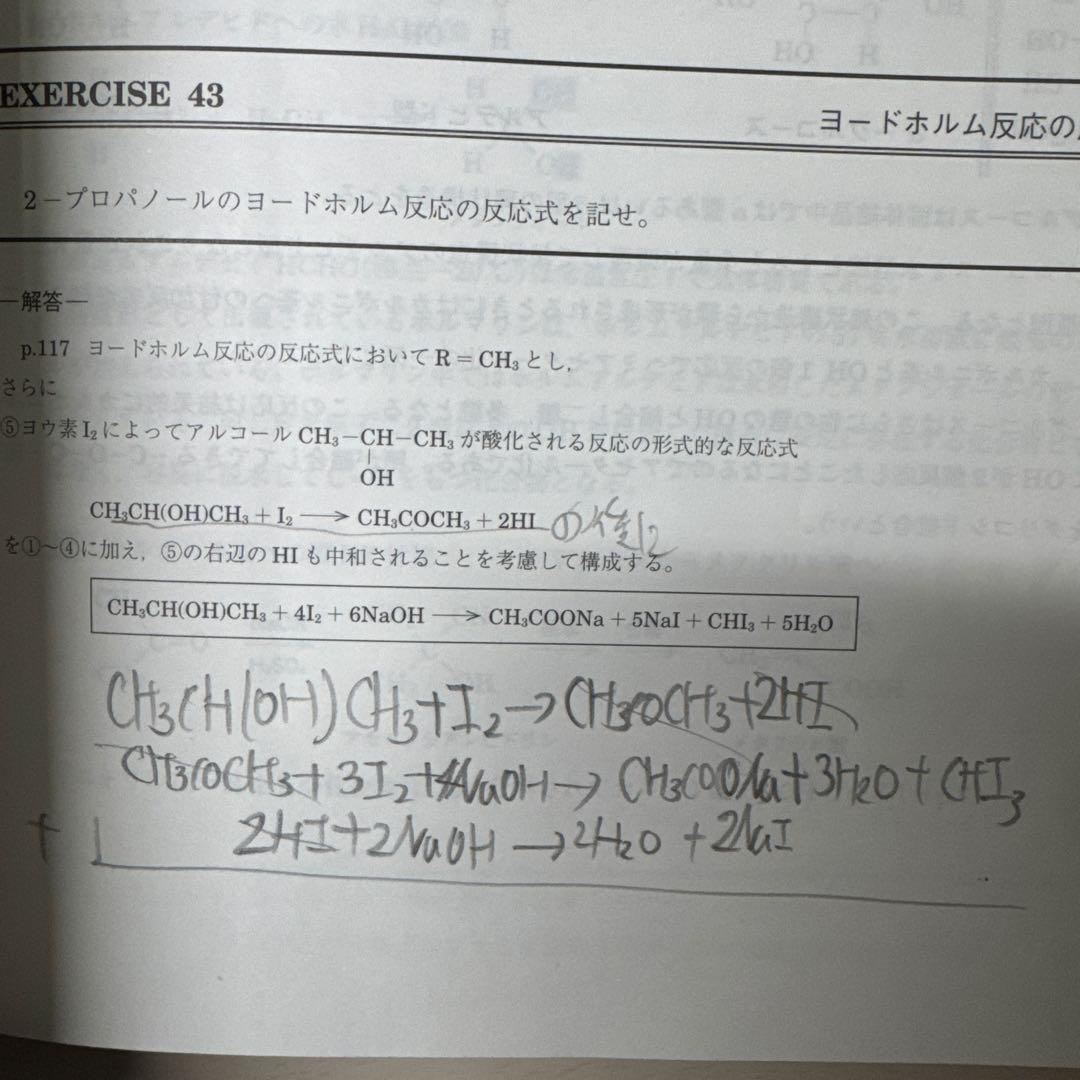 EXERCISE 43
ヨードホルム反応の
2−プロパノールのヨードホルム反応の反応式を記せ。
―解答―
p.117 ヨードホルム反応の反応式においてR＝CH₃とし，
さらに
⑤ヨウ素I₂によってアルコール CH₃−CH−CH₃が酸化される反応の形式的な反応式
OH
CH₃CH(OH)CH₃ + I₂ ⟶ CH₃COCH₃ + 2HI
を①〜④に加え，⑤の右辺のHIも中和されることを考慮して構成する。
CH₃CH(OH)CH₃ + 4I₂ + 6NaOH ⟶ CH₃COONa + 5NaI + CHI₃ + 5H₂O
CH₃CH(OH)CH₃+I₂→CH₃COCH₃+2HI
CH₃COCH₃+3I₂+4NaOH→CH₃COONa+3H₂O+CHI₃
+ 2HI+2NaOH→2H₂O+2NaI